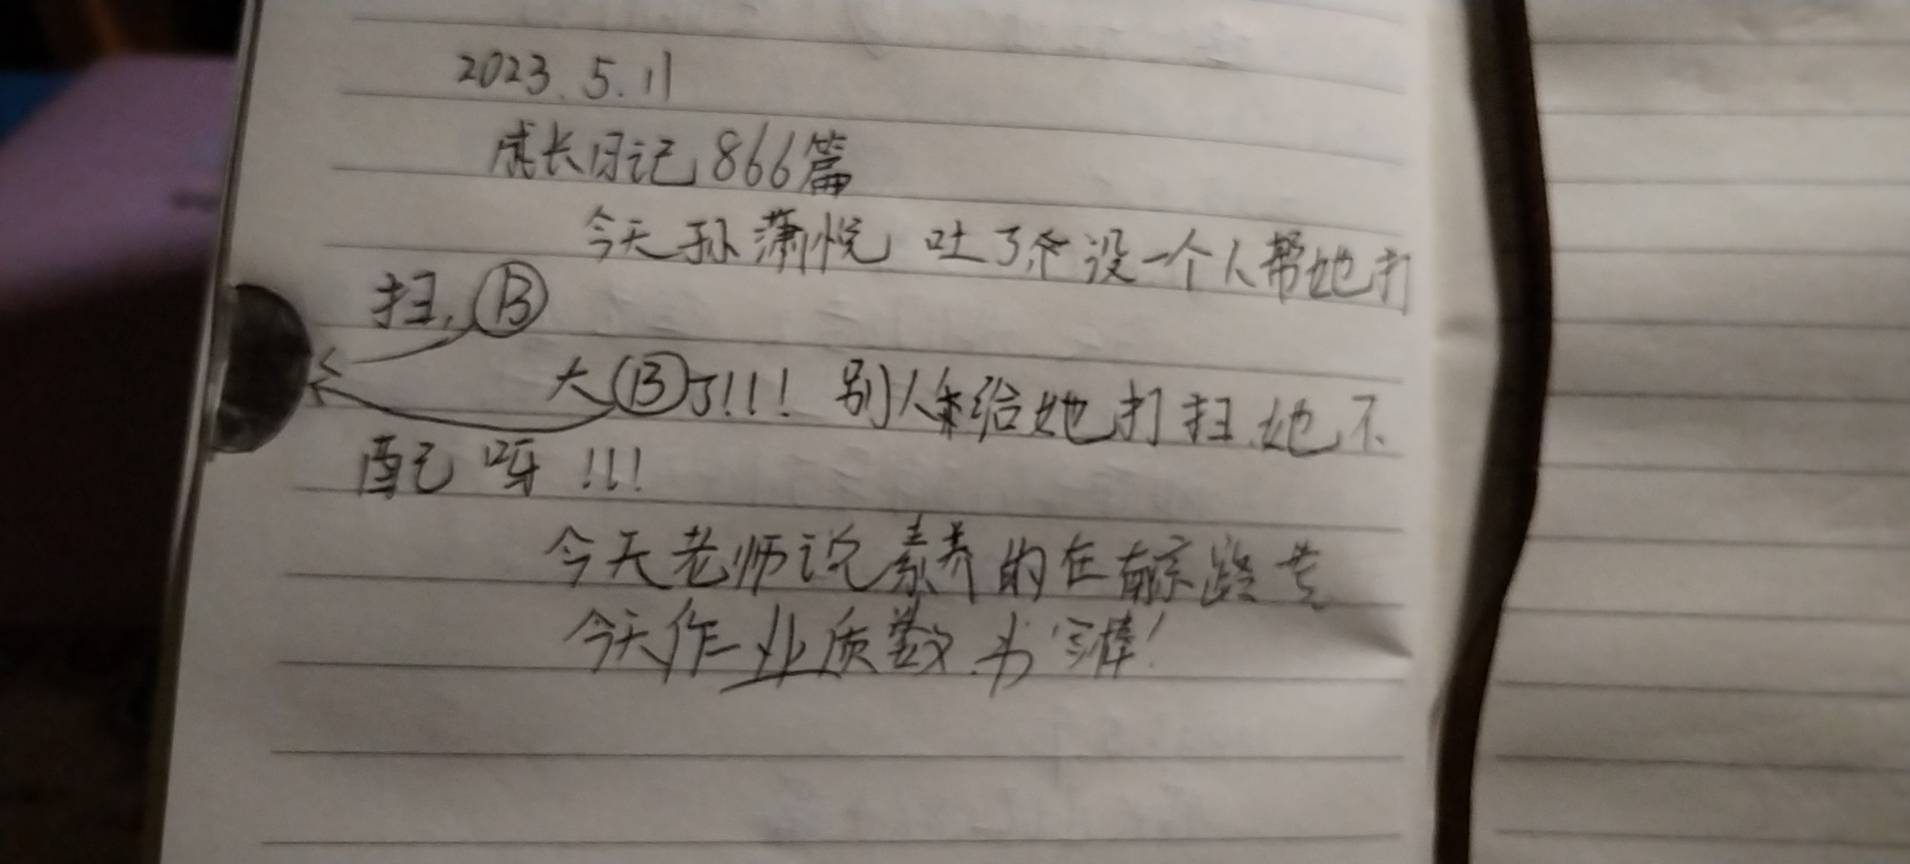 2023.5.11
成长日记866篇
今天孙潇悦吐了 没一个人帮她打
扫,B
大B了!!! 别人来给她打扫她不
配呀!!!
今天老师说素养的在
今天作业质数 书写棒!